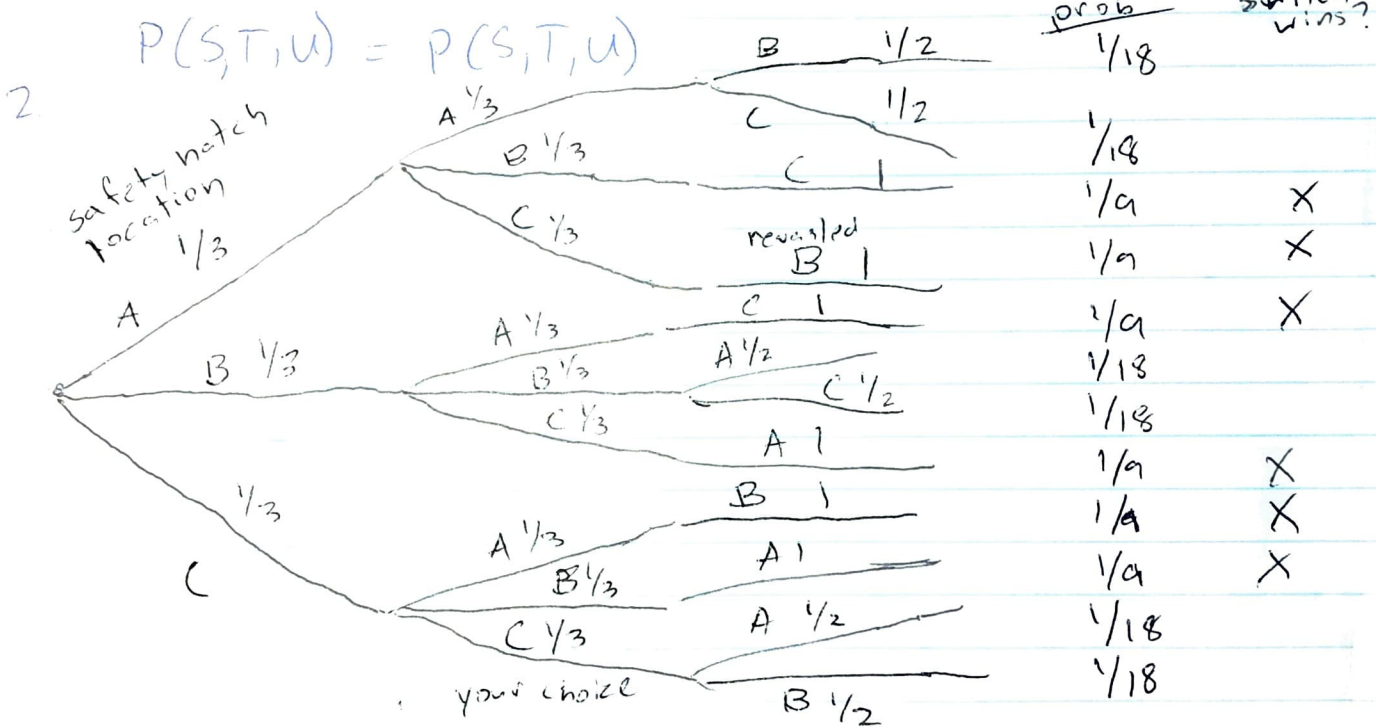 P(S,T,U) = P(S,T,U)
2.
prob
wins?
safety hatch
location
1/3
A
B 1/3
1/3
C
A 1/3
B 1/3
C 1/3
A 1/3
B 1/3
C 1/3
A 1/3
B 1/3
C 1/3
your choice
B 1/2
C 1/2
C 1
revealed
B 1
C 1
A 1/2
C 1/2
A 1
B 1
A 1
A 1/2
B 1/2
1/18
1/18
1/9 X
1/9 X
1/9 X
1/18
1/18
1/9 X
1/9 X
1/9 X
1/18
1/18